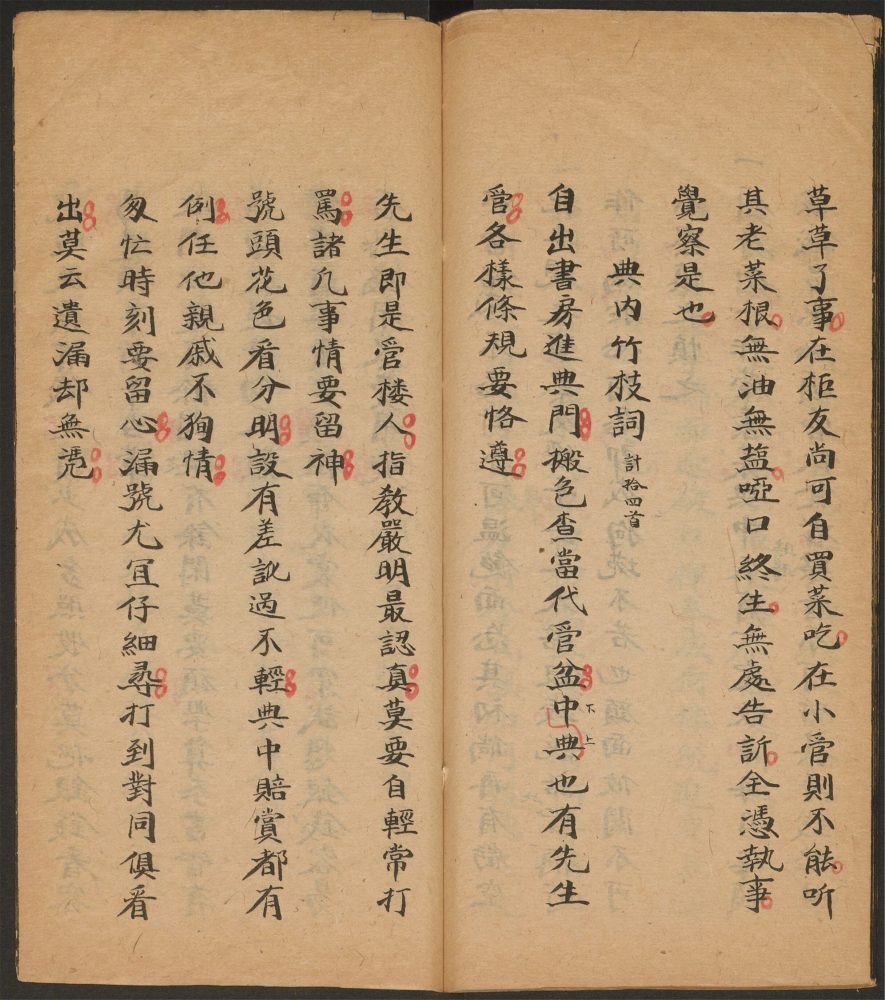 草草了事在柜友尚可自買菜吃在小管則不能听
其老菜根無油無盐啞口終生無處告訴全憑執事
覺察是也
典内竹枝詞 計拾四首
自出書房進典門搬包查當代管盆中典也有先生
下上
管各樣條規要恪遵
先生即是管楼人指教嚴明最認真莫要自輕常打
罵諸凡事情要留神
號頭花色看分明設有差訛過不輕典中賠賞都有
例任他親戚不狥情
匆忙時刻要留心漏號尤宜仔細尋打到對同俱看
出莫云遺漏却無凭